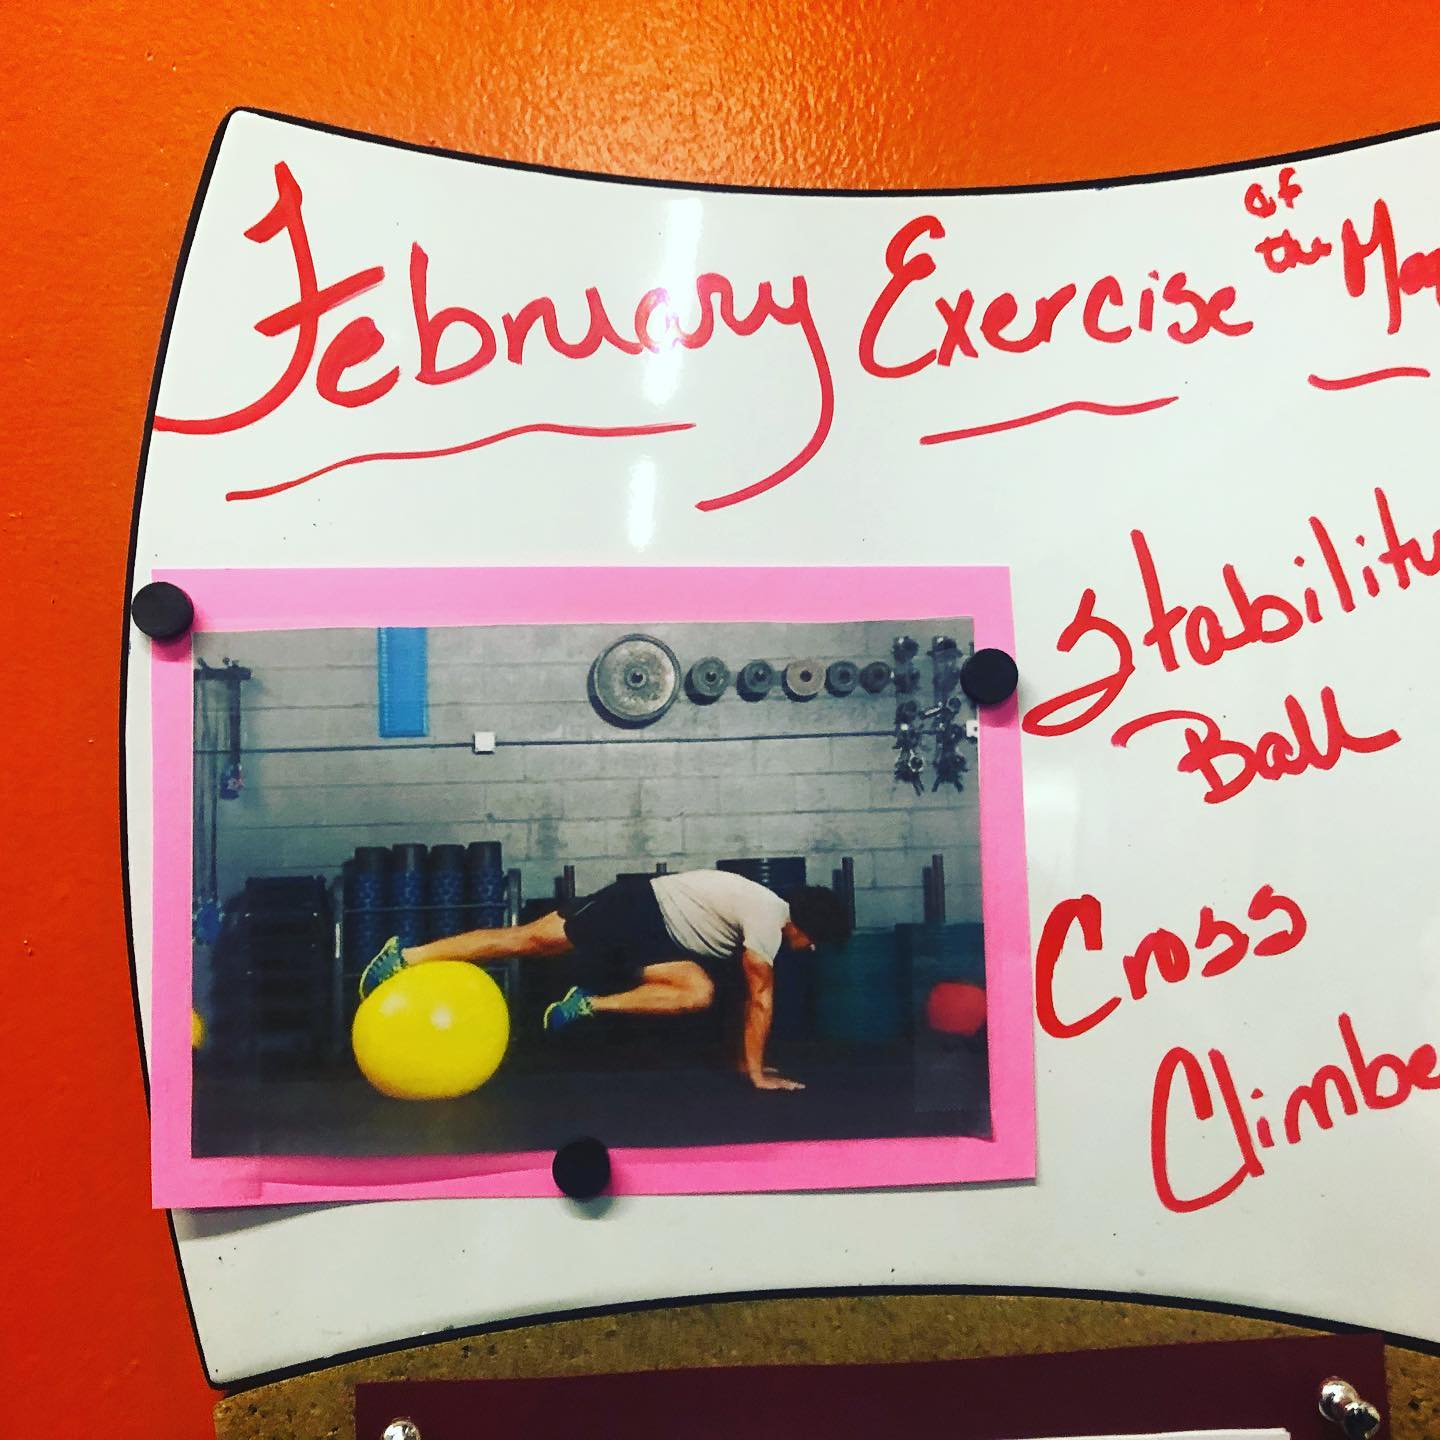 February Exercise of the
Stability
Ball
Cross